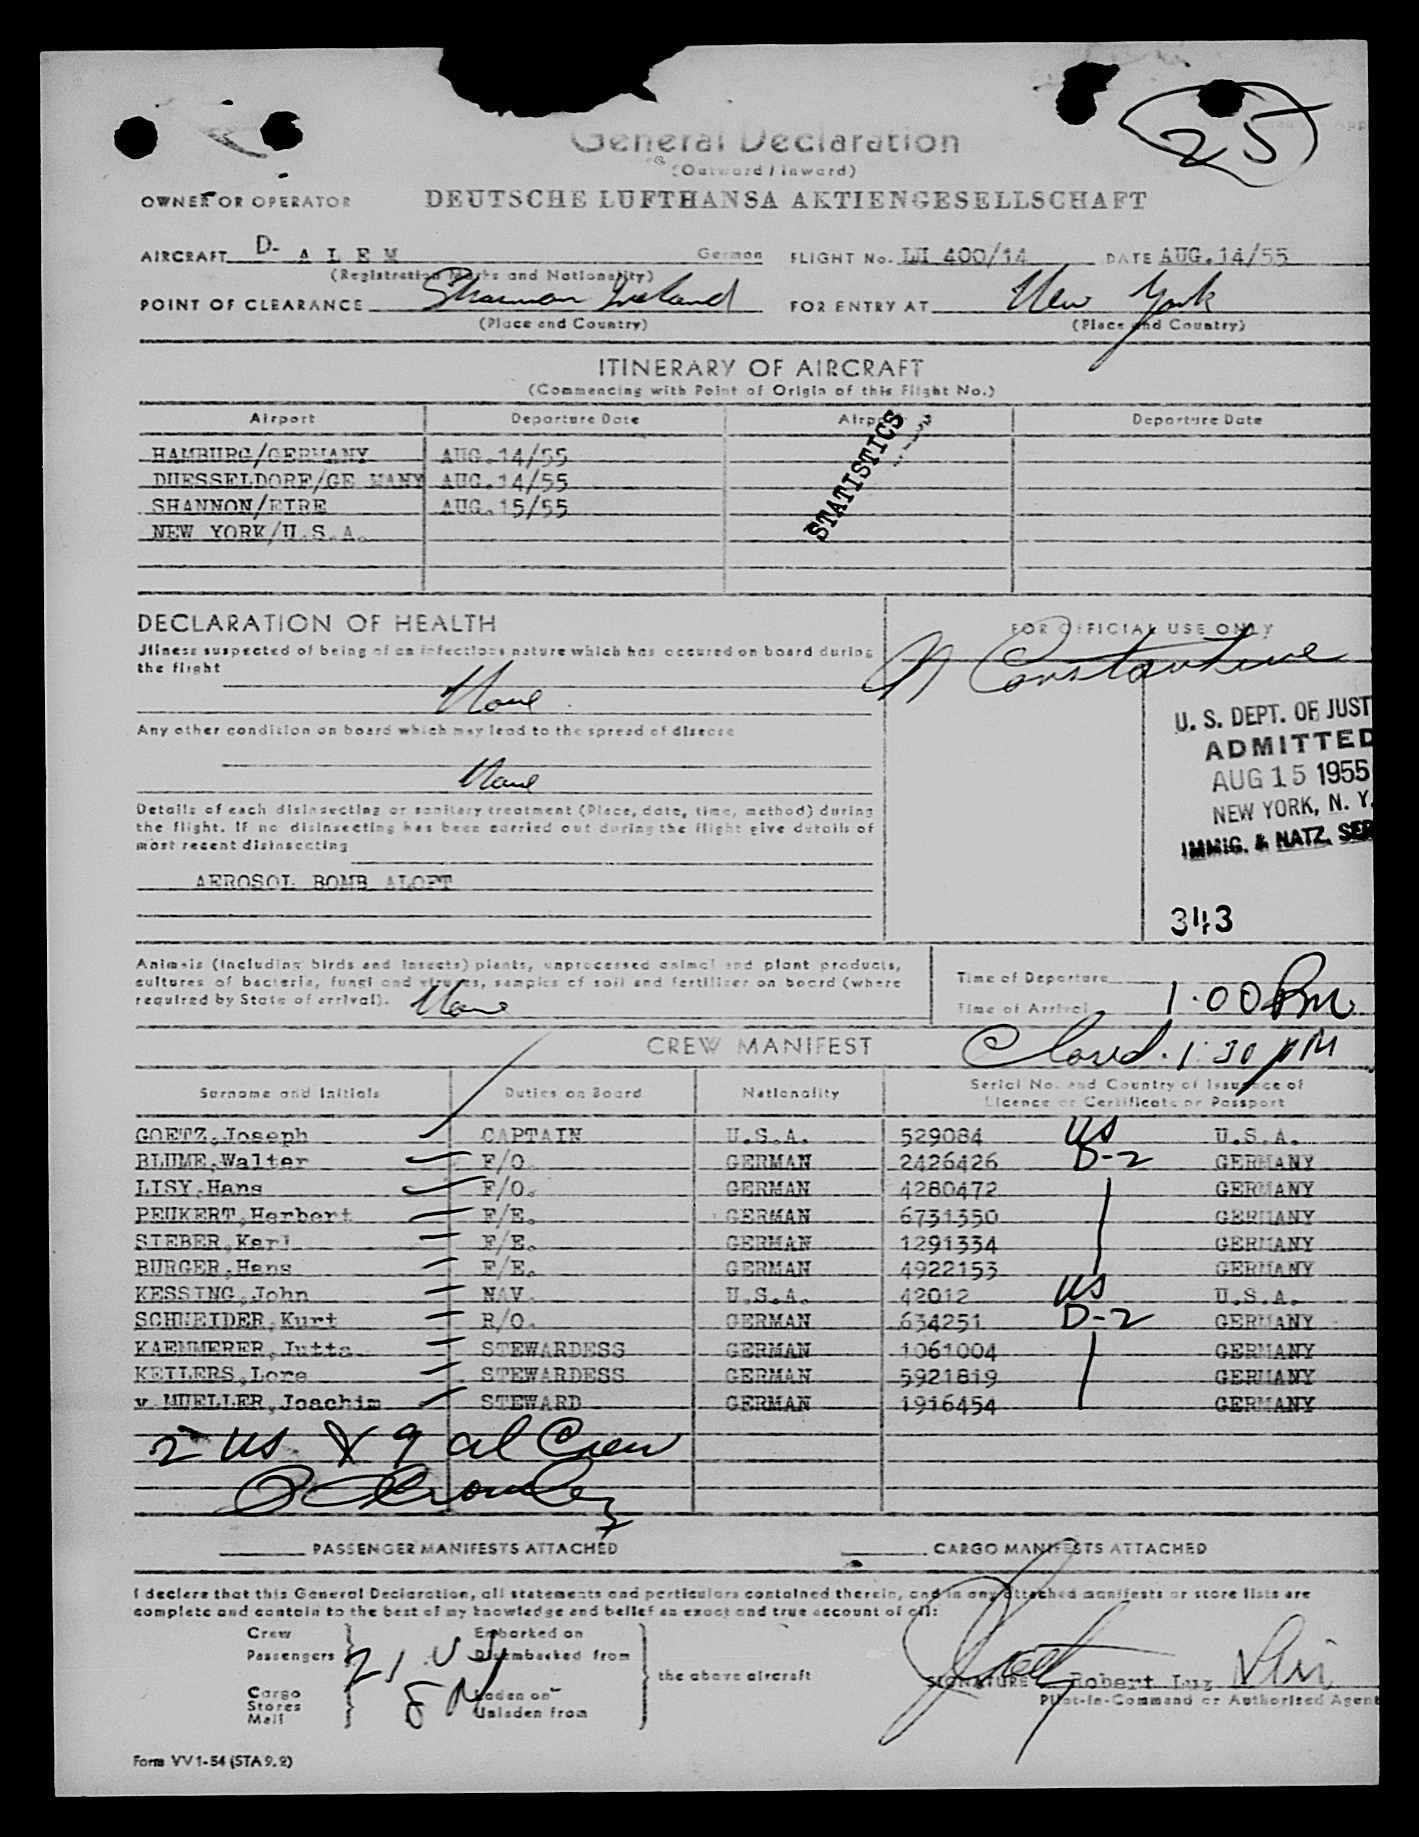 25
General Declaration
(Outward / Inward)
OWNER OR OPERATOR DEUTSCHE LUFTHANSA AKTIENGESELLSCHAFT
AIRCRAFT D- A L E M German FLIGHT No. LH 400/14 DATE AUG.14/55
(Registration Marks and Nationality)
POINT OF CLEARANCE Shannon Ireland FOR ENTRY AT New York
(Place and Country) (Place and Country)
ITINERARY OF AIRCRAFT
(Commencing with Point of Origin of this Flight No.)
Airport Departure Date Airport Departure Date
HAMBURG/GERMANY AUG.14/55
DUESSELDORF/GE MANY AUG.14/55
SHANNON/EIRE AUG.15/55
NEW YORK/U.S.A.
STATISTICS
DECLARATION OF HEALTH
Jllness suspected of being of an infectious nature which has occured on board during
the flight
None
Any other condition on board which may lead to the spread of disease
None
Details of each disinsecting or sanitary treatment (Place, date, time, method) during
the flight. If no disinsecting has been carried out during the flight give details of
most recent disinsecting
AEROSOL BOMB ALOFT
FOR OFFICIAL USE ONLY
N Constantine
U. S. DEPT. OF JUST
ADMITTED
AUG 15 1955
NEW YORK, N. Y.
IMMIG. & NATZ. SER
343
Animals (including birds and insects) plants, unprocessed animal and plant products,
cultures of bacteria, fungi and viruses, samples of soil and fertilizer on board (where
required by State of arrival). None
Time of Departure
Time of Arrival 1:00 PM
Closed. 1:30 PM
CREW MANIFEST
Surname and Initials Duties on Board Nationality Serial No. and Country of Issuance of
Licence or Certificate or Passport
GOETZ,Joseph CAPTAIN U.S.A. 529084 US U.S.A.
BLUME,Walter F/O. GERMAN 2426426 D-2 GERMANY
LISY,Hans F/O. GERMAN 4280472 GERMANY
PEUKERT,Herbert F/E. GERMAN 6731350 GERMANY
SIEBER,Karl F/E. GERMAN 1291334 GERMANY
BURGER,Hans F/E. GERMAN 4922153 GERMANY
KESSING,John NAV. U.S.A. 42012 US U.S.A.
SCHNEIDER,Kurt R/O. GERMAN 634251 D-2 GERMANY
KAEMMERER,Jutta STEWARDESS GERMAN 1061004 GERMANY
KEILERS,Lore STEWARDESS GERMAN 5921819 GERMANY
v.MUELLER,Joachim STEWARD GERMAN 1916454 GERMANY
2 US & 9 al Crew
PASSENGER MANIFESTS ATTACHED CARGO MANIFESTS ATTACHED
I declare that this General Declaration, all statements and particulars contained therein, and in any attached manifests or store lists are
complete and contain to the best of my knowledge and belief an exact and true account of all:
Crew Embarked on
Passengers 21 US Disembarked from
the above aircraft
Cargo 8 Laden on
Stores Unladen from
Mail
SIGNATURE Robert Luz
Pilot-in-Command or Authorised Agent
Form VV 1-54 (STA 9.2)